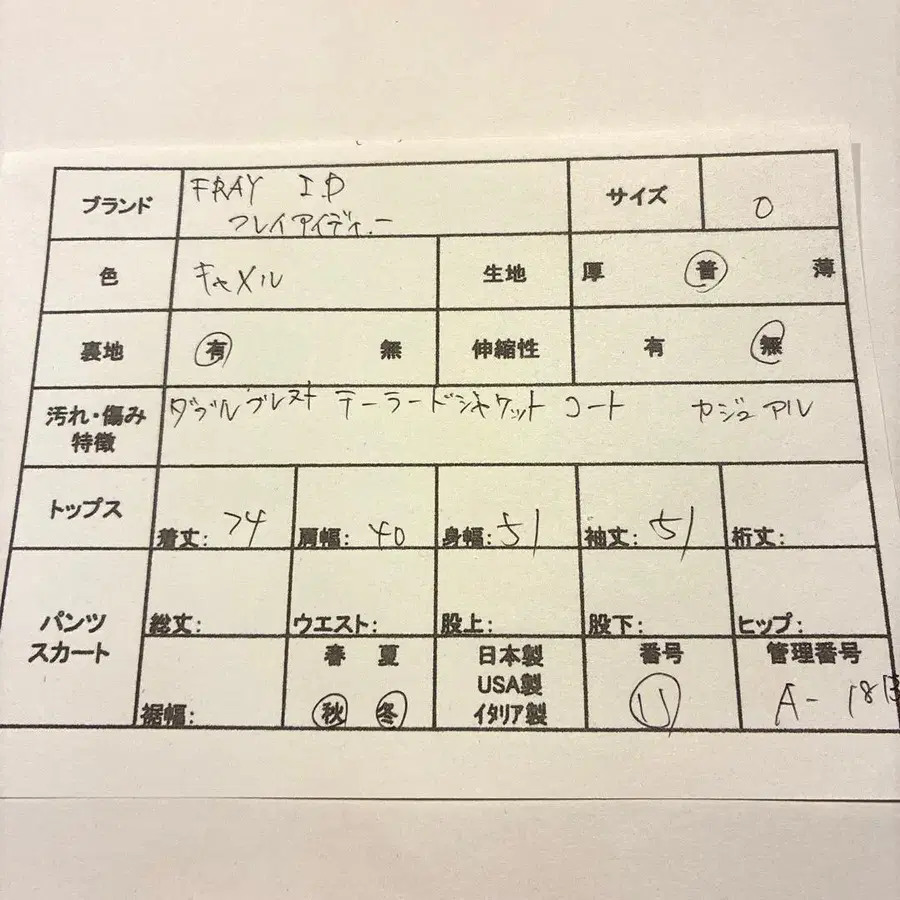 ブランド FRAY I.D サイズ 0
フレイアイディー
色 キャメル 生地 厚 普 薄
裏地 有 無 伸縮性 有 無
汚れ・傷み ダブルブレスト テーラードジャケット コート カジュアル
特徴
トップス 着丈: 74 肩幅: 40 身幅: 51 袖丈: 51 裄丈:
パンツ 総丈: ウエスト: 股上: 股下: ヒップ:
スカート 春 夏 日本製 番号 管理番号
USA製
裾幅: 秋 冬 イタリア製 11 A-